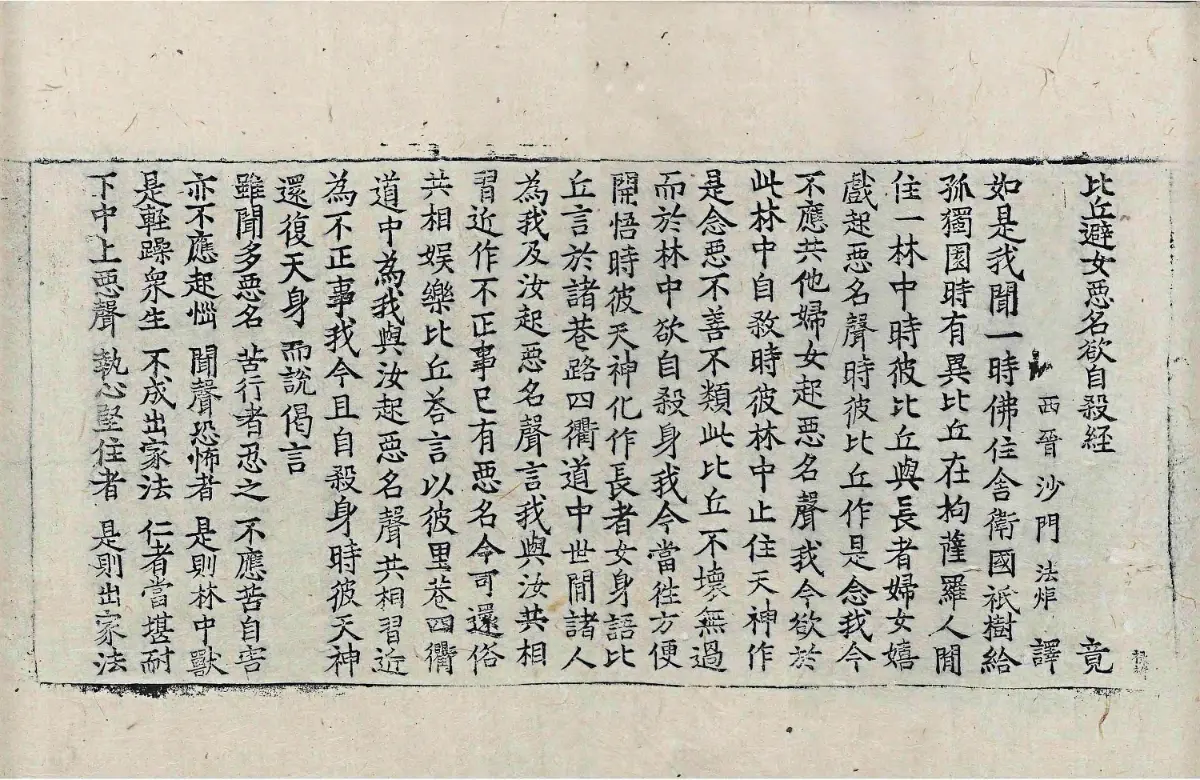 比丘避女悪名欲自殺経 竟
西晉沙門法炬 譯
如是我聞一時佛住舍衛國祇樹給
孤獨園時有異比丘在拘薩羅人閒
住一林中時彼比丘與長者婦女嬉
戲起悪名聲時彼比丘作是念我今
不應共他婦女起悪名聲我今欲於
此林中自煞時彼林中止住天神作
是念悪不善不類此比丘不壊無過
而於林中欲自殺身我今當徃方便
開悟時彼天神化作長者女身語比
丘言於諸巷路四衢道中世閒諸人
為我及汝起悪名聲言我與汝共相
習近作不正事已有悪名今可還俗
共相娛樂比丘荅言以彼里巷四衢
道中為我與汝起悪名聲共相習近
為不正事我今且自殺身時彼天神
還復天身 而說偈言
雖聞多悪名 苦行者忍之 不應苦自害
亦不應起惱 聞聲恐怖者 是則林中獸
是輕躁衆生 不成出家法 仁者當堪耐
下中上悪聲 執心堅住者 是則出家法